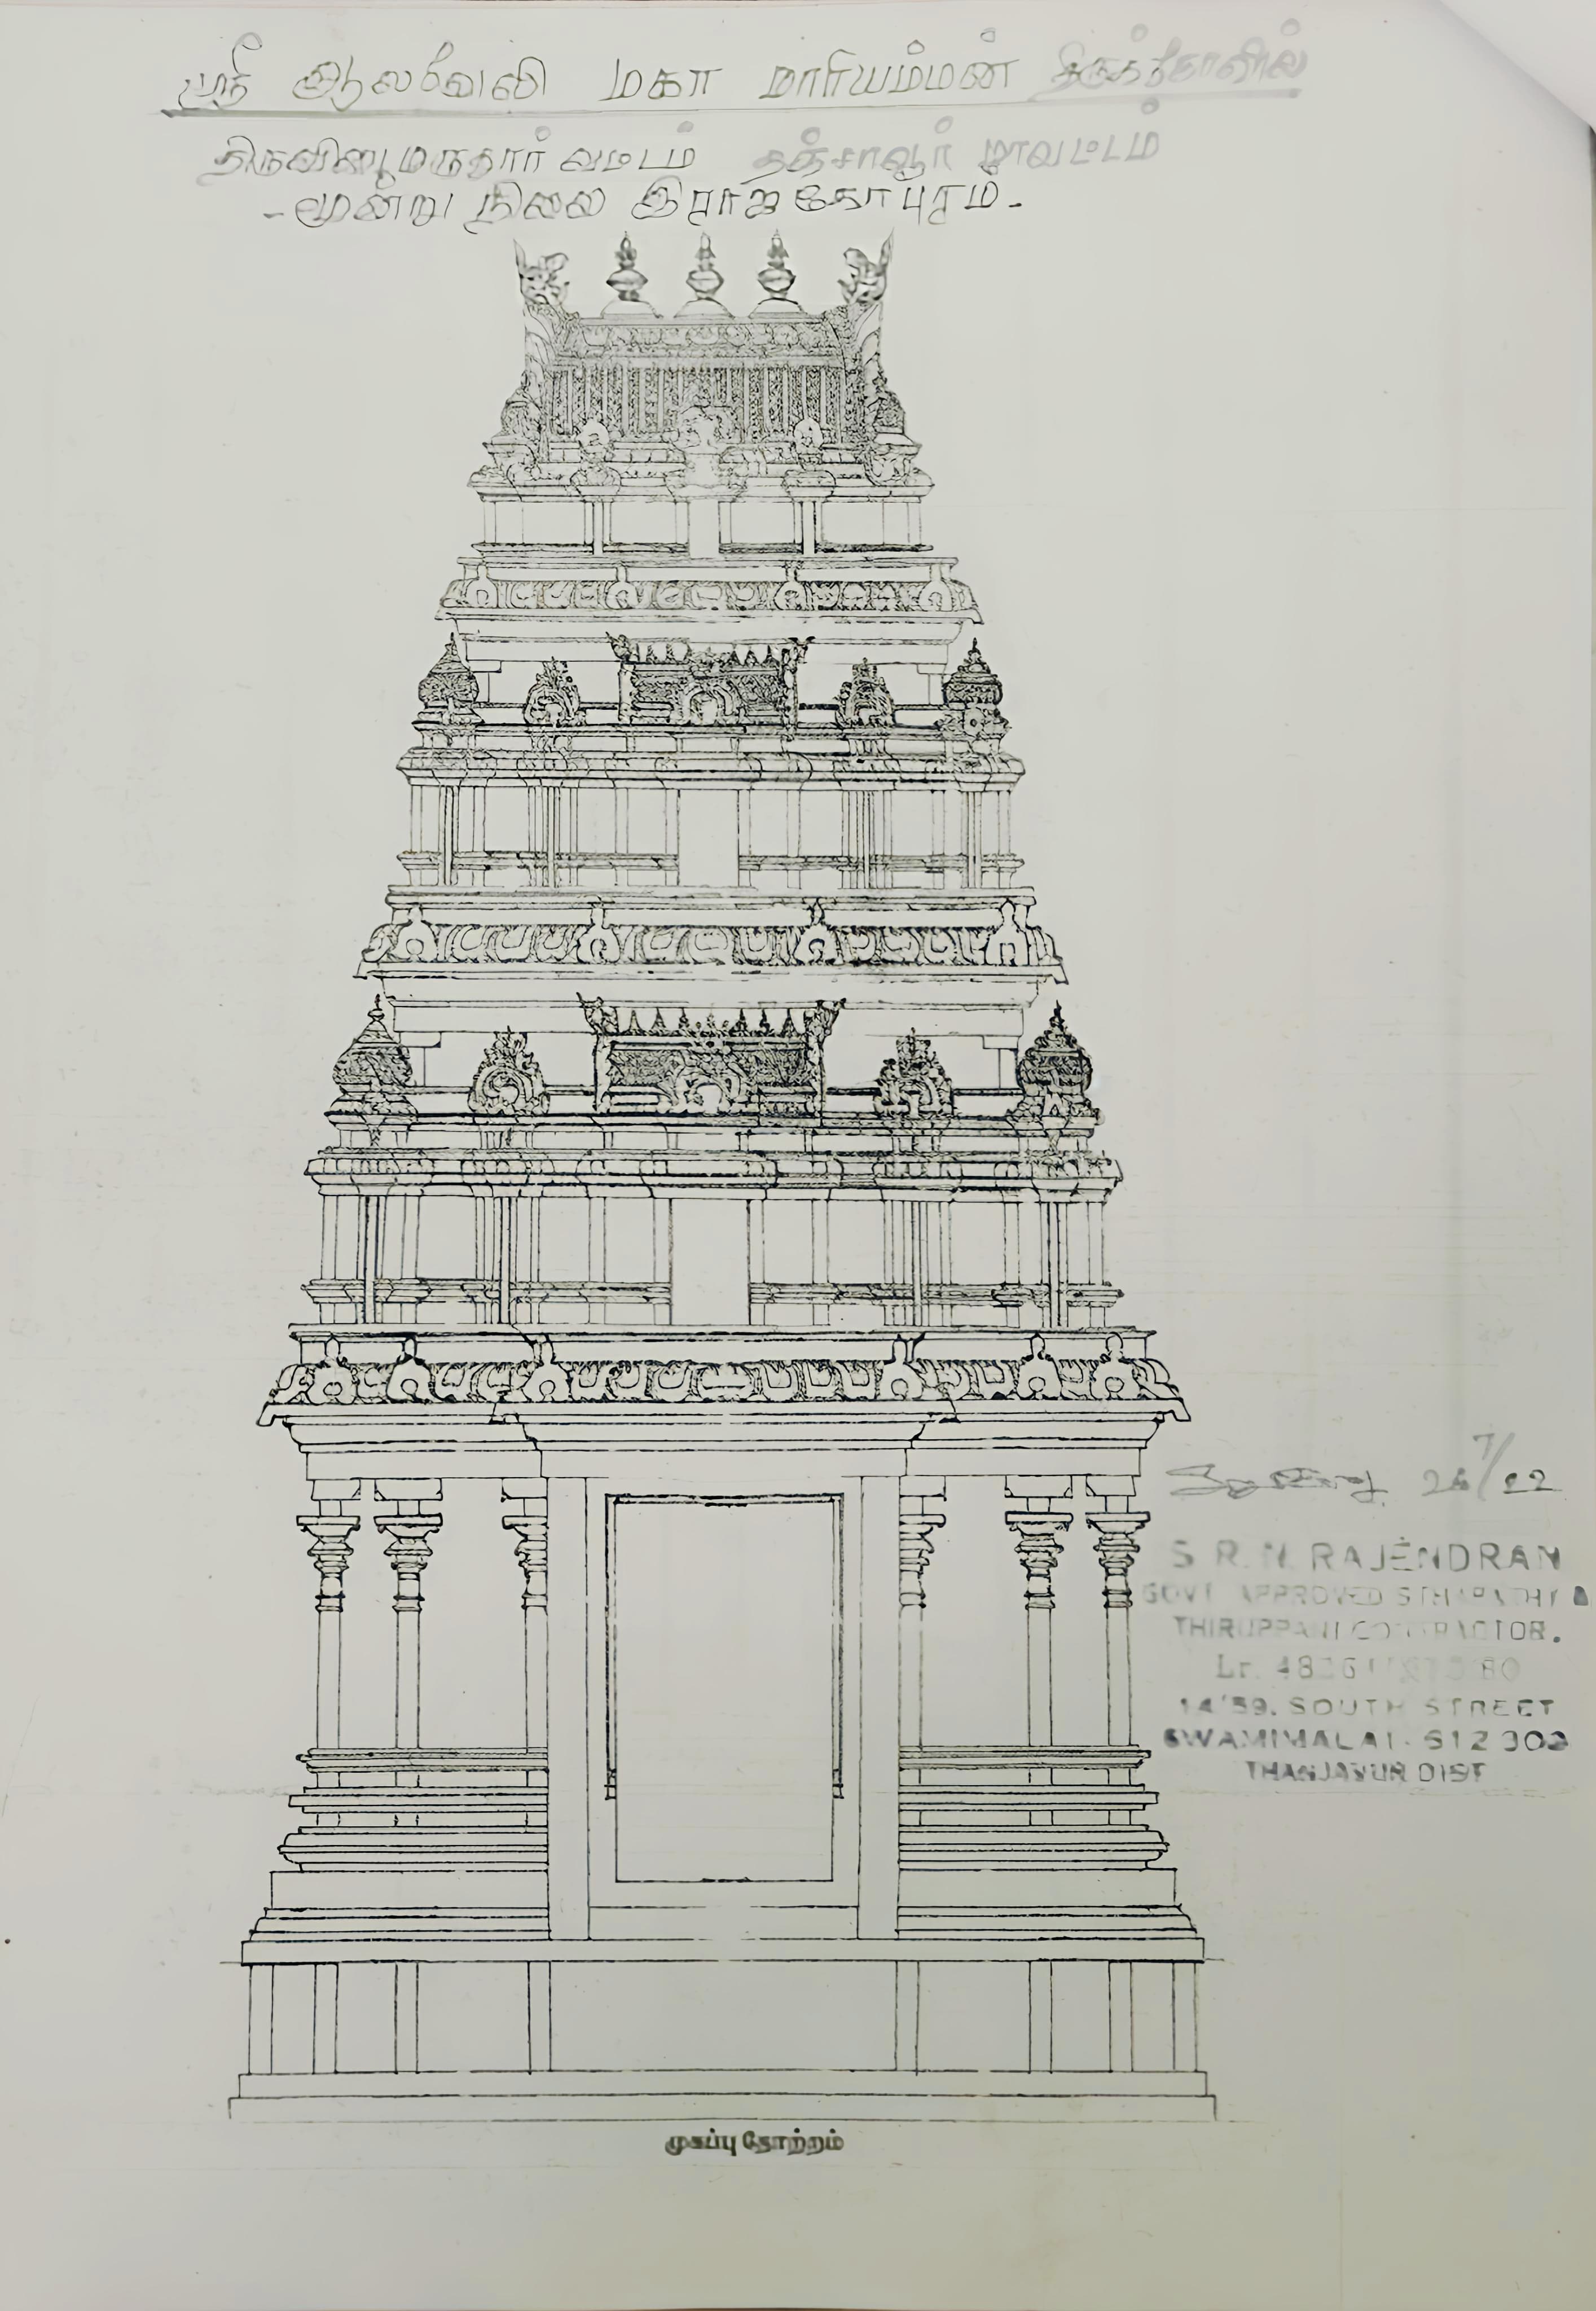 ஸ்ரீ ஆலவேலி மகா மாரியம்மன் திருக்கோவில்
திருவிடைமருதூர் வட்டம் தஞ்சாவூர் மாவட்டம்
-மூன்று நிலை இராஜகோபுரம்-
7/
26/22
S. R. N. RAJENDRAN
GOVT APPROVED STHAPATHY &
THIRUPPANI CONTRACTOR.
14/59. SOUTH STREET
SWAMIMALAI - 612 302
THANJAVUR DIST
முகப்பு தோற்றம்